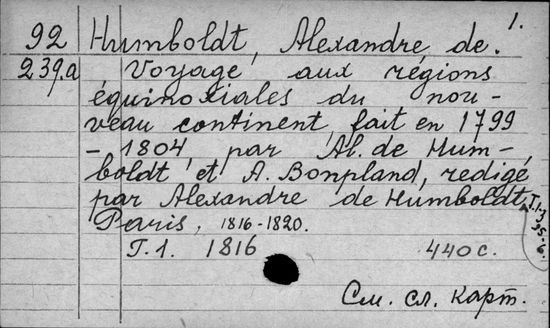 1.
92 Humboldt, Alexandre de.
239a Voyage aux régions
équinoxiales du nou-
veau continent, fait en 1799
-1804, par Al. de Hum-
boldt et A. Bonpland, redigé
par Alexandre de Humboldt.
Paris, 1816-1820.
T.1. 1816 440 c.
T.1-3
5-6.
См. сл. карт.